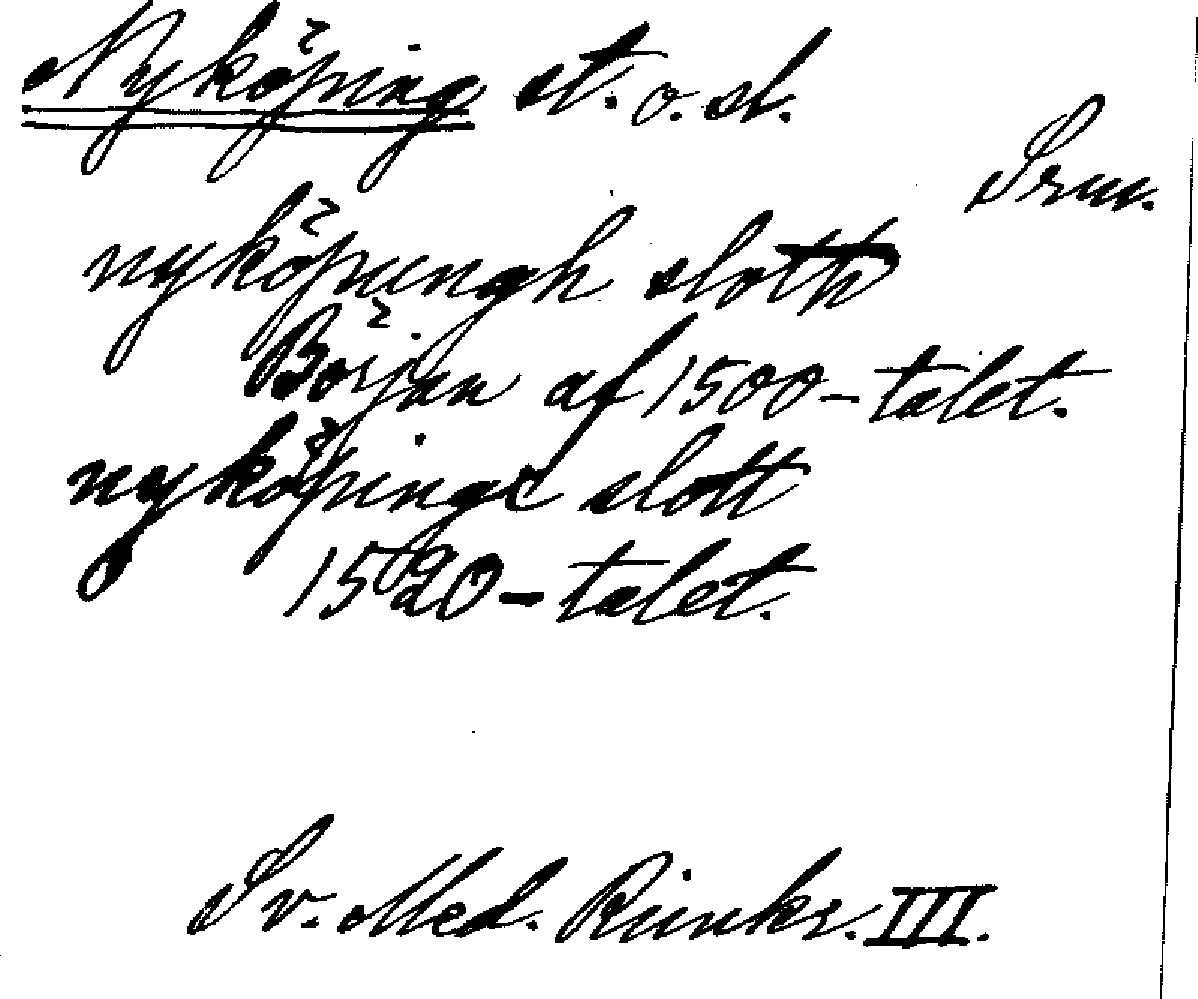 Nyköping st. o. sl.
Srm.
nyköpungh slotth
Början af 1500-talet.
nyköpingx slott
1520-talet.
Sv. Med. Rimkr. III.